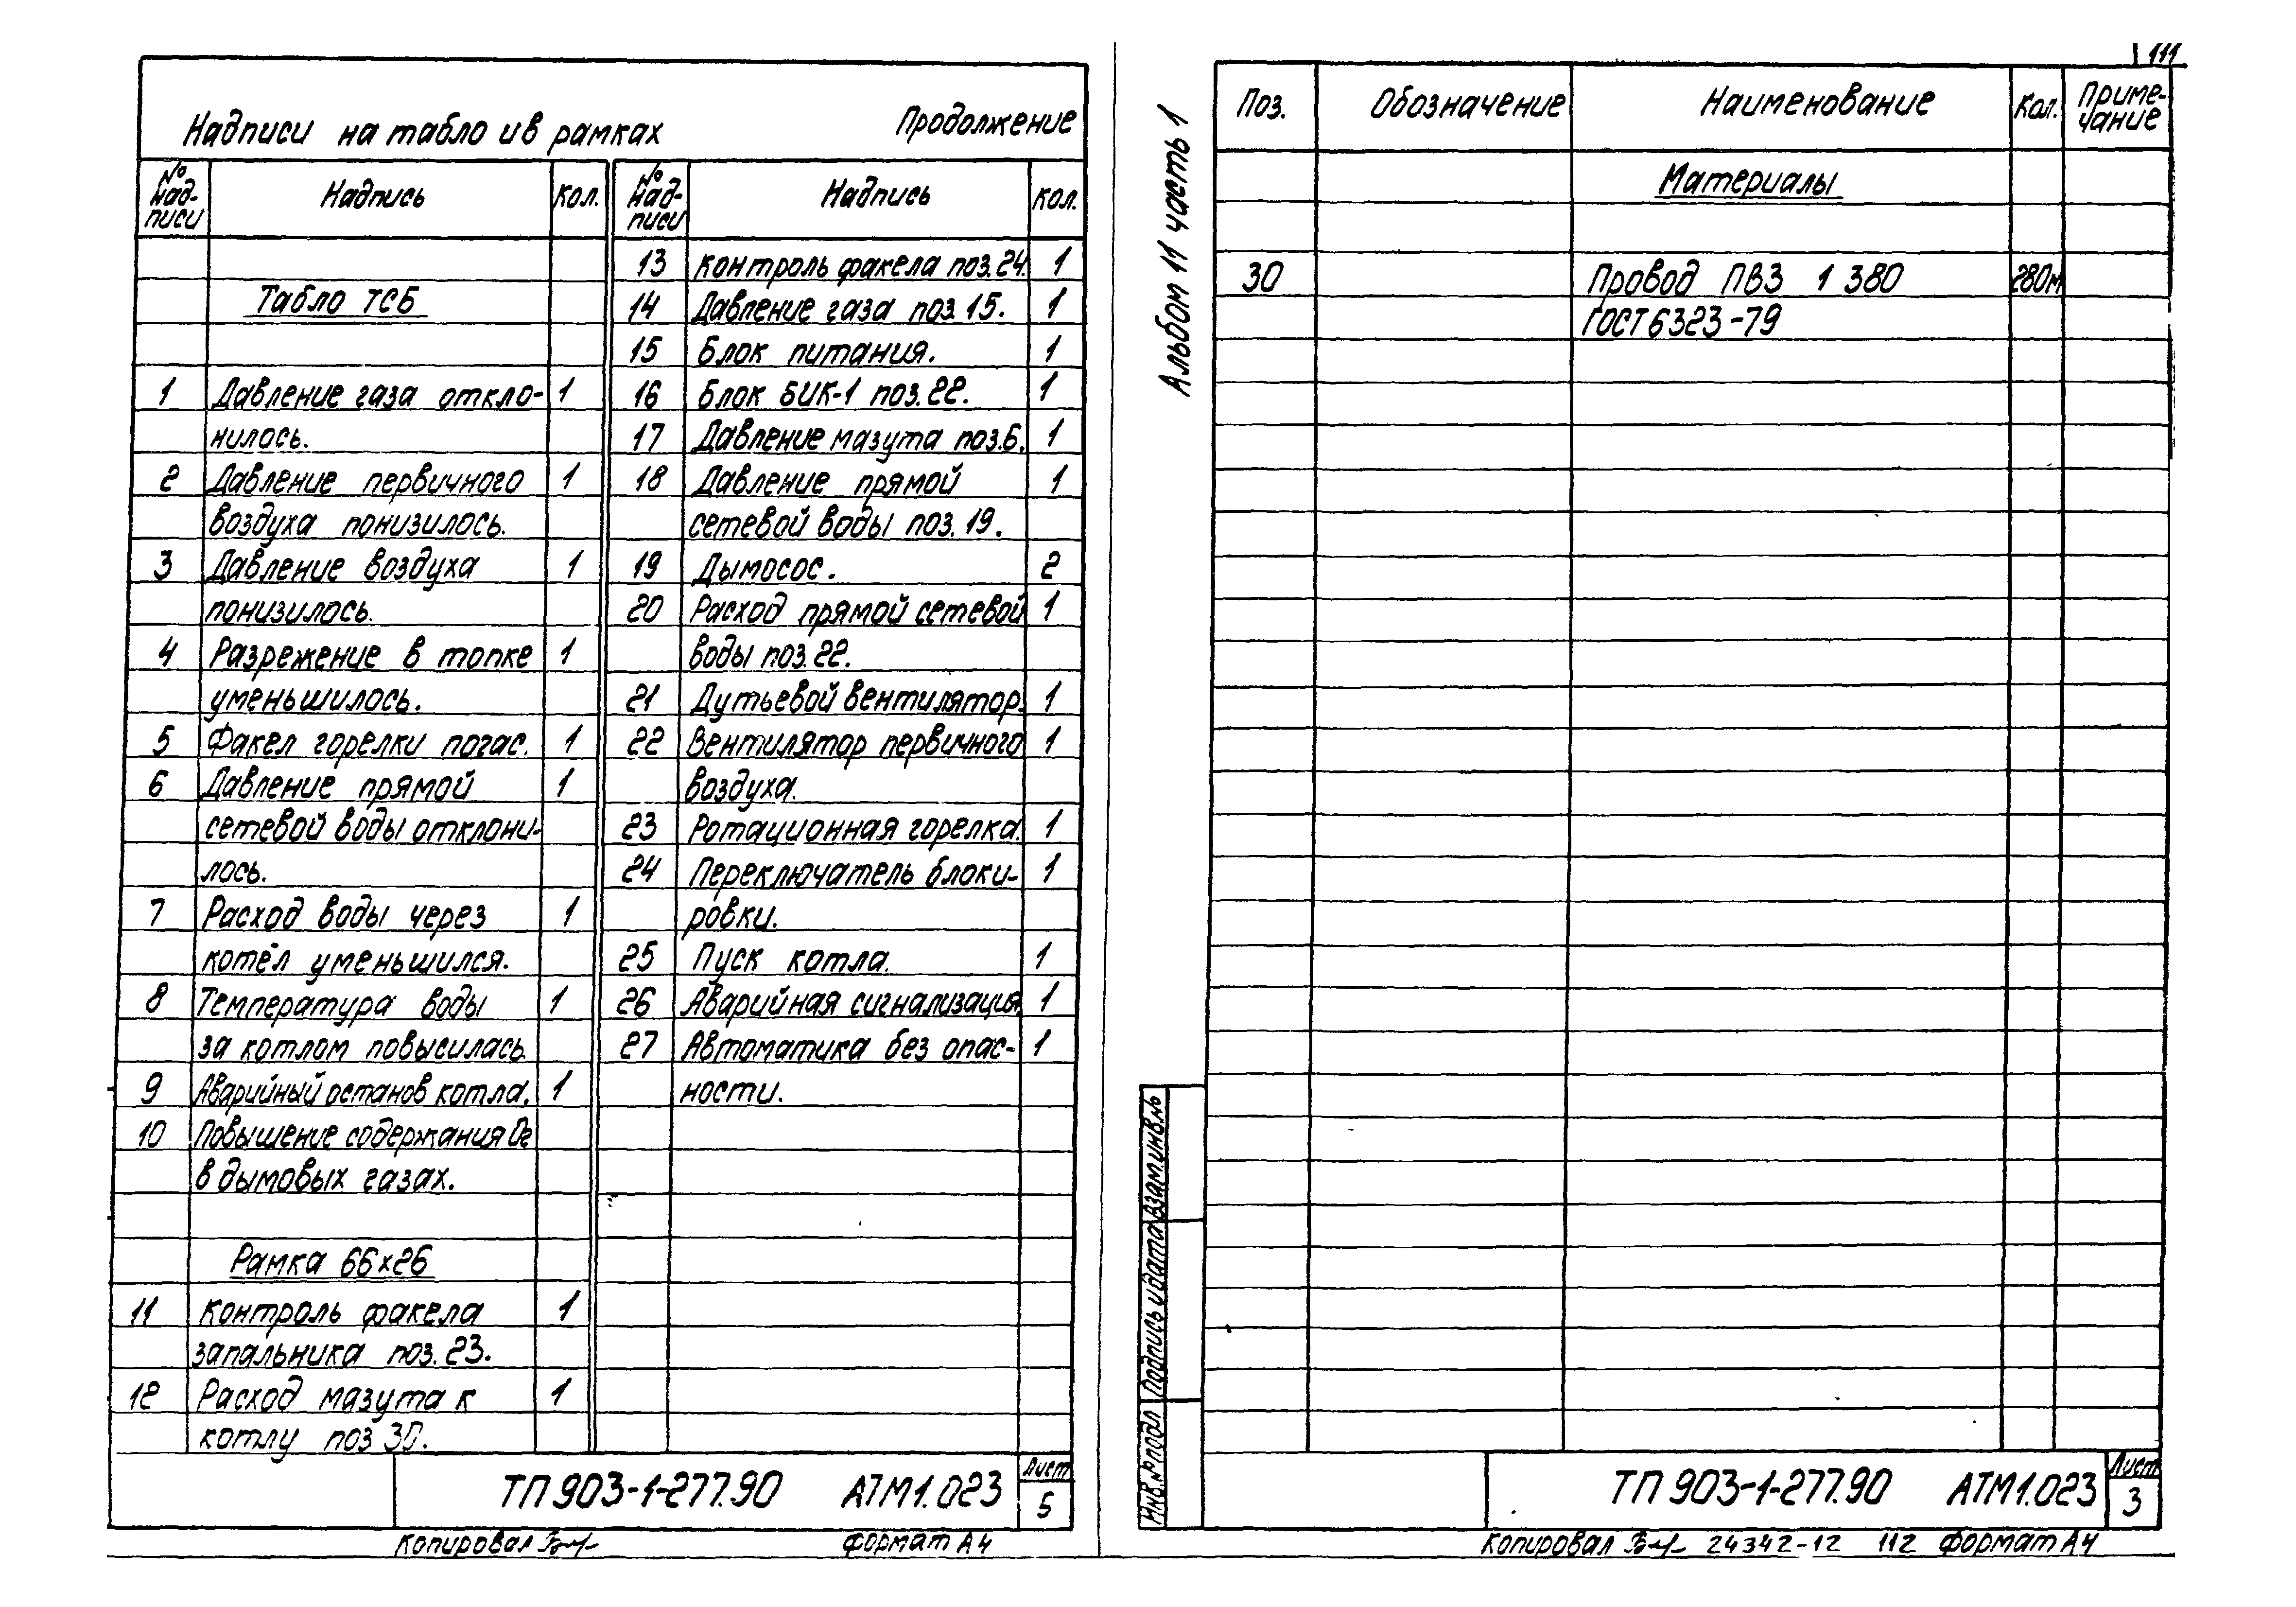 Надписи на табло и в рамках
Продолжение
№ над-писи Надпись Кол.
Табло ТСБ
1 Давление газа откло- 1
нилось.
2 Давление первичного 1
воздуха понизилось.
3 Давление воздуха 1
понизилось.
4 Разрежение в топке 1
уменьшилось.
5 Факел горелки погас. 1
6 Давление прямой 1
сетевой воды отклони-
лось.
7 Расход воды через 1
котёл уменьшился.
8 Температура воды 1
за котлом повысилась
9 Аварийный останов котла. 1
10 Повышение содержания O2
в дымовых газах.
Рамка 66x26
11 Контроль факела 1
запальника поз. 23.
12 Расход мазута к 1
котлу поз 30.
№ над-писи Надпись Кол.
13 Контроль факела поз. 24. 1
14 Давление газа поз. 15. 1
15 Блок питания. 1
16 Блок БИК-1 поз. 22. 1
17 Давление мазута поз.6. 1
18 Давление прямой 1
сетевой воды поз. 19.
19 Дымосос. 2
20 Расход прямой сетевой 1
воды поз. 22.
21 Дутьевой вентилятор. 1
22 Вентилятор первичного 1
воздуха.
23 Ротационная горелка. 1
24 Переключатель блоки- 1
ровки.
25 Пуск котла. 1
26 Аварийная сигнализация. 1
27 Автоматика без опас- 1
ности.
ТП 903-1-277.90 АТМ1.023
Лист
5
Копировал
Формат А4
111
Альбом 11 часть 1
Поз. Обозначение Наименование Кол. Приме-
чание
Материалы
30 Провод ПВ3 1 380 280м
ГОСТ 6323-79
Взам.инв.№
Подпись и дата
Инв.№ подл
ТП 903-1-277.90 АТМ1.023
Лист
3
Копировал 24342-12 112 Формат А4